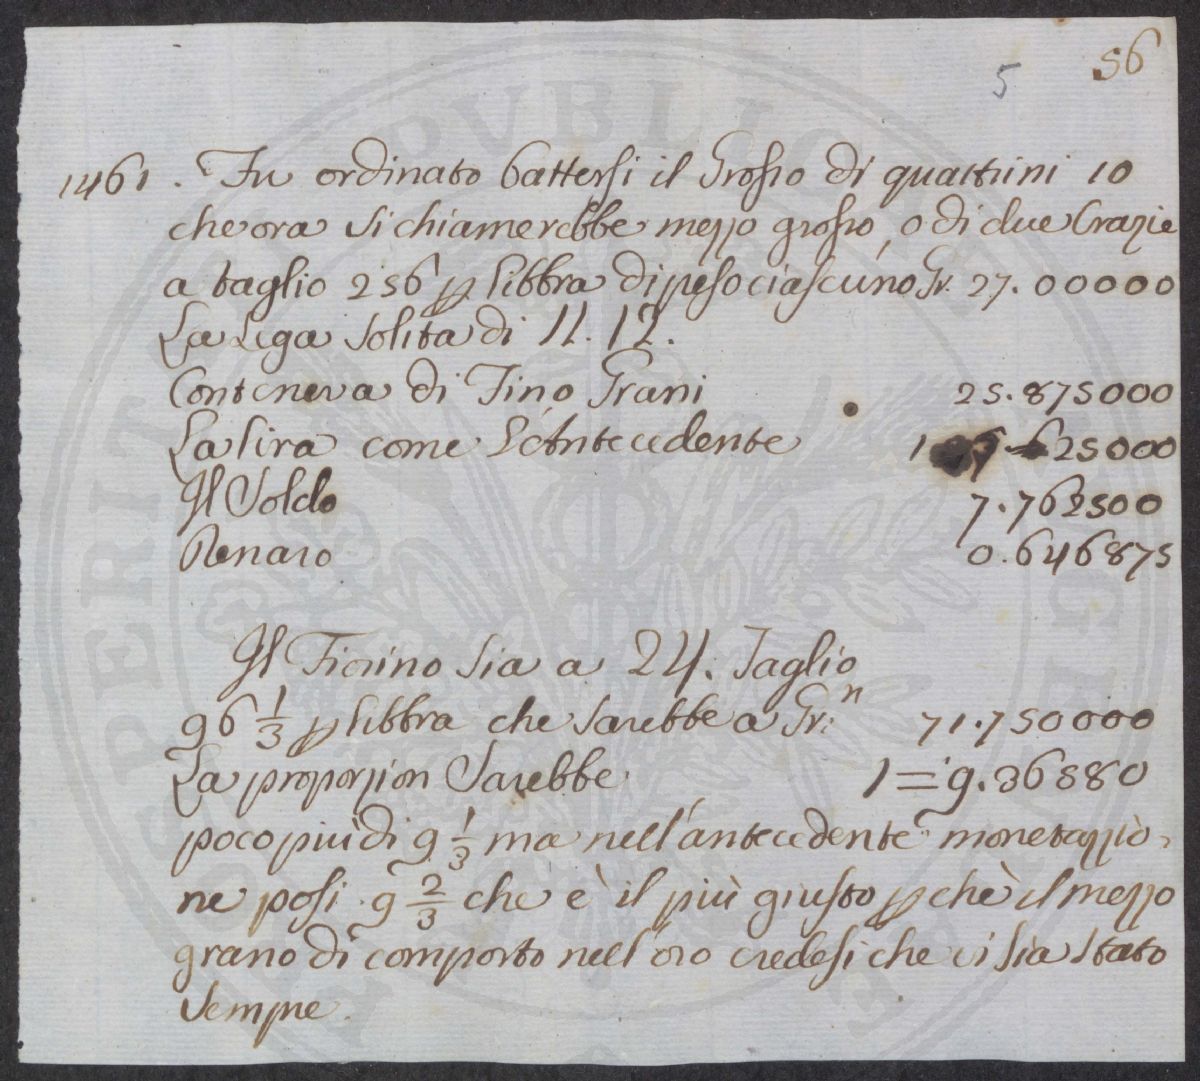 5 56
1461. Fu ordinato battersi il Grosso di quattrini 10
che ora si chiamerebbe mezzo grosso, o di due Crazie
a taglio 256 p libbra di peso ciascuno Gr. 27.00000
La Lega solita di 11.12.
Conteneva di Fino Grani 25.875000
La Lira come L'Antecedente 1 25000
Il Soldo 7.762500
Denaro 0.646875
Il Fiorino sia a 24. Taglio
96 1/3 p libbra che sarebbe a Gr.n 71.750000
La proporzion sarebbe 1=9.36580
poco più di 9 1/3 ma nell'antecedente monetazzio-
ne posi 9 2/3 che è il più giusto p chè il mezzo
grano di comporto nell'oro credesi che vi sia stato
sempre.